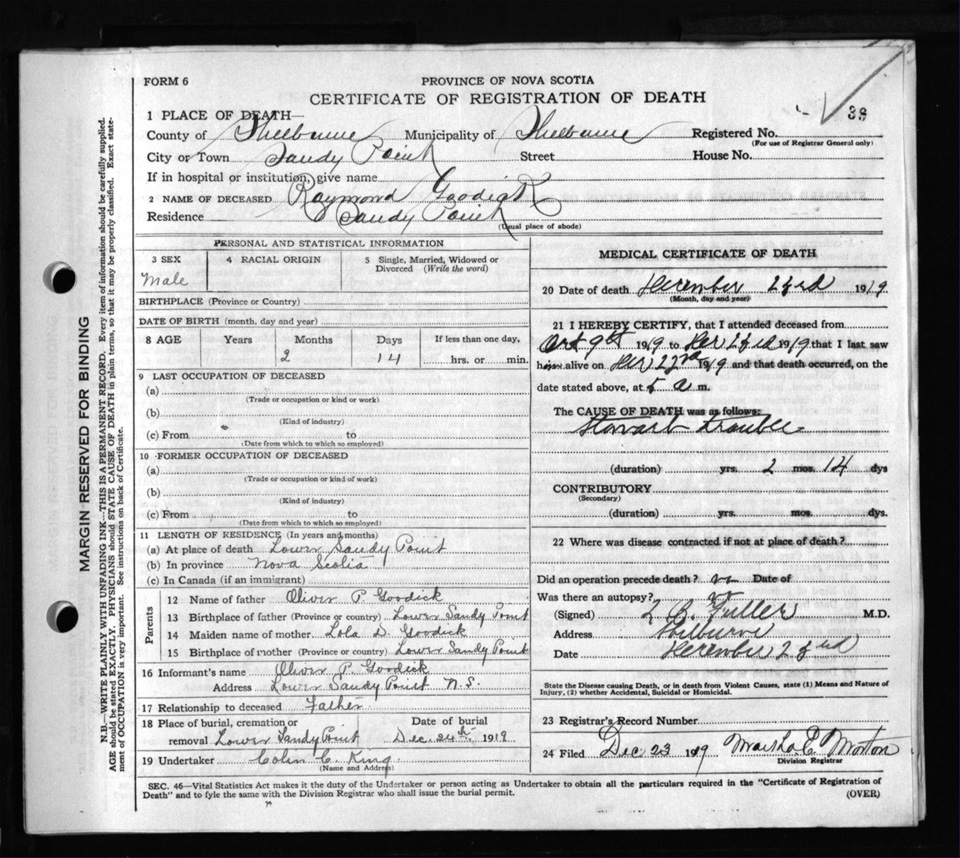 FORM 6
PROVINCE OF NOVA SCOTIA
CERTIFICATE OF REGISTRATION OF DEATH
38
1 PLACE OF DEATH—
County of Shelburne Municipality of Shelburne Registered No.
(For use of Registrar General only)
City or Town Sandy Point Street House No.
If in hospital or institution, give name
2 NAME OF DECEASED Raymond Goodick
Residence Sandy Point
(Usual place of abode)
PERSONAL AND STATISTICAL INFORMATION
3 SEX
Male
4 RACIAL ORIGIN
5 Single, Married, Widowed or
Divorced (Write the word)
BIRTHPLACE (Province or Country)
DATE OF BIRTH (month, day and year)
8 AGE Years Months Days If less than one day,
2 14 hrs. or min.
9 LAST OCCUPATION OF DECEASED
(a)
(Trade or occupation or kind or work)
(b)
(Kind of industry)
(c) From to
(Date from which to which so employed)
10 FORMER OCCUPATION OF DECEASED
(a)
(Trade or occupation or kind of work)
(b)
(Kind of industry)
(c) From to
(Date from which to which so employed)
11 LENGTH OF RESIDENCE (In years and months)
(a) At place of death Lower Sandy Point
(b) In province Nova Scotia
(c) In Canada (if an immigrant)
Parents
12 Name of father Oliver P. Goodick
13 Birthplace of father (Province or country) Lower Sandy Point
14 Maiden name of mother Lola D. Goodick
15 Birthplace of mother (Province or country) Lower Sandy Point
16 Informant's name Oliver P. Goodick
Address Lower Sandy Point N.S.
17 Relationship to deceased Father
18 Place of burial, cremation or Date of burial
removal Lower Sandy Point Dec. 24th 1919
19 Undertaker Colin C. King
(Name and Address)
MEDICAL CERTIFICATE OF DEATH
20 Date of death December 23rd 1919
(Month, day and year)
21 I HEREBY CERTIFY, that I attended deceased from
Oct 9th 1919 to Dec 23rd 1919 that I last saw
him alive on Dec 1919 and that death occurred, on the
date stated above, at 5 a m.
The CAUSE OF DEATH was as follows:
Trouble
(duration) yrs. 2 mos. 14 dys
CONTRIBUTORY
(Secondary)
(duration) yrs. mos. dys.
22 Where was disease contracted if not at place of death?
Did an operation precede death? no Date of
Was there an autopsy?
(Signed) L B. Fuller M.D.
Address Shelburne
Date December 23rd
State the Disease causing Death, or in death from Violent Causes, state (1) Means and Nature of
Injury, (2) whether Accidental, Suicidal or Homicidal.
23 Registrar's Record Number
24 Filed Dec 23 1919 Morton
Division Registrar
SEC. 46—Vital Statistics Act makes it the duty of the Undertaker or person acting as Undertaker to obtain all the particulars required in the "Certificate of Registration of
Death" and to fyle the same with the Division Registrar who shall issue the burial permit. (OVER)
MARGIN RESERVED FOR BINDING
N.B.—WRITE PLAINLY WITH UNFADING INK—THIS IS A PERMANENT RECORD. Every item of information should be carefully supplied.
AGE should be stated EXACTLY. PHYSICIANS should STATE CAUSE OF DEATH in plain terms, so that it may be properly classified. Exact state-
ment of OCCUPATION is very important. See instructions on back of Certificate.